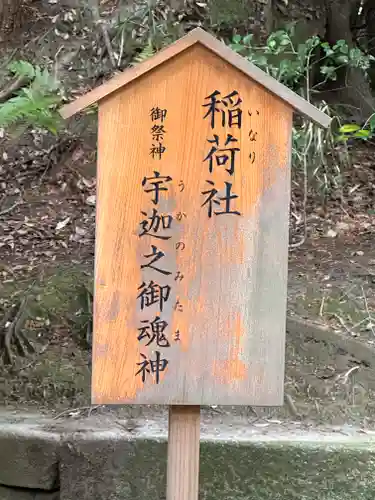 稲荷社
いなり
御祭神
宇迦之御魂神
うかのみたま